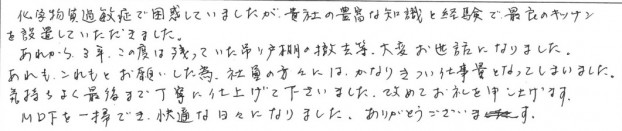 化学物質過敏症で困惑していましたが、貴社の豊富な知識と経験で、最良のキッチン
を設置していただきました。
あれから、3年、この度は残っていた吊り戸棚の撤去等、大変お世話になりました。
あれも、これもとお願いした為、社員の方々には、かなりきつい仕事量となってしまいました。
気持ちよく最後まで丁寧に仕上げて下さいました、改めてお礼を申し上げます。
MDFを一掃でき、快適な日々になりました。ありがとうございます。